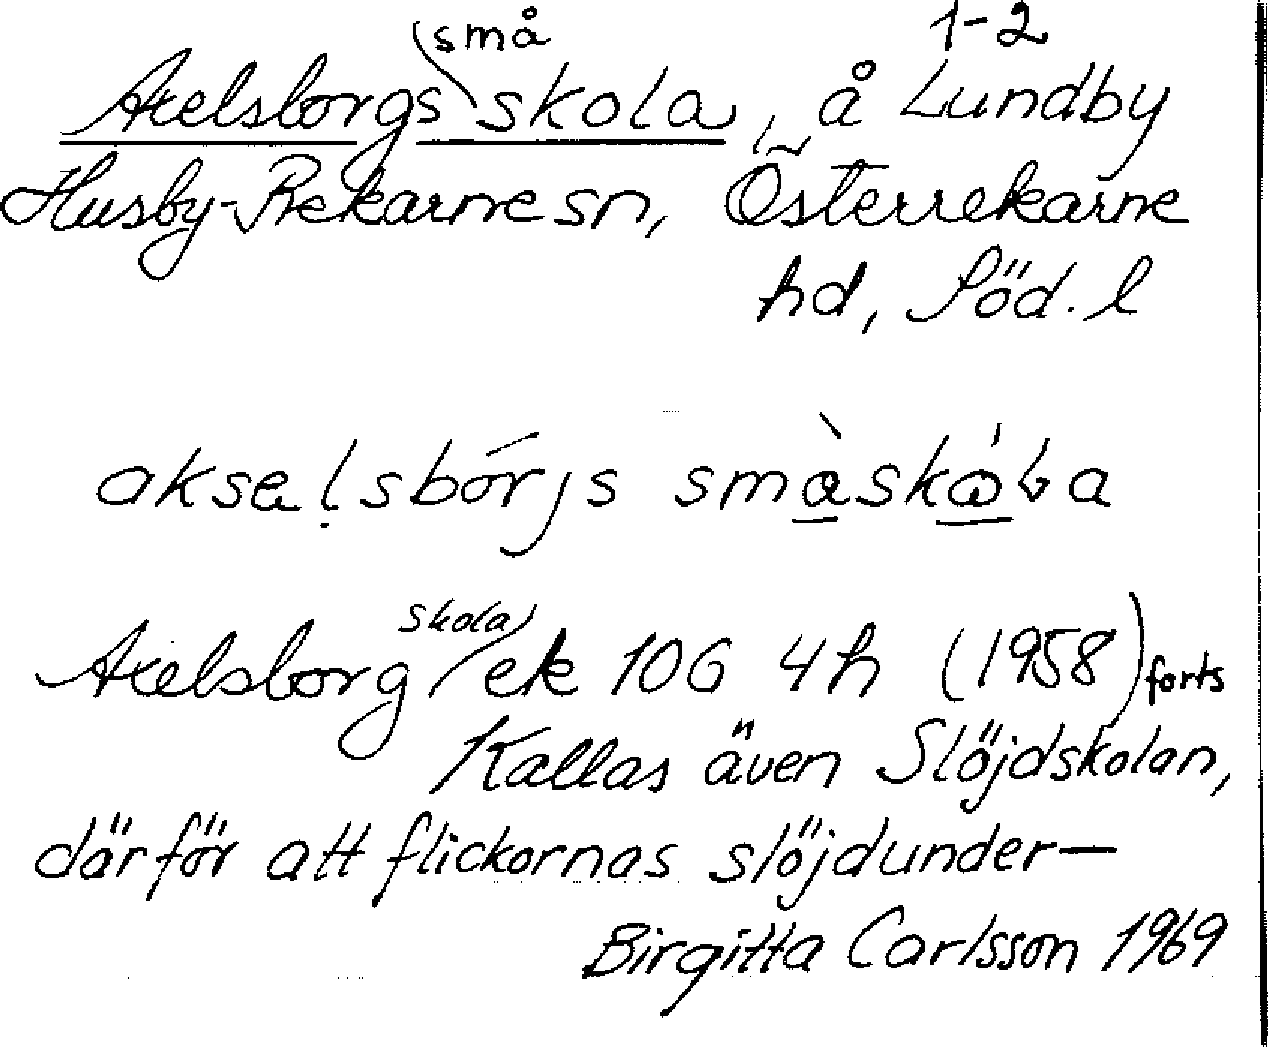 1-2
Axelsborgs småskola, å Lundby
Husby-Rekarne sn, Österrekarne
hd, Söd. l
aksalsbórjs småskola
Axelsborg skola ek 10G 4h (1958) forts
Kallas även Slöjdskolan,
därför att flickornas slöjdunder-
Birgitta Carlsson 1969